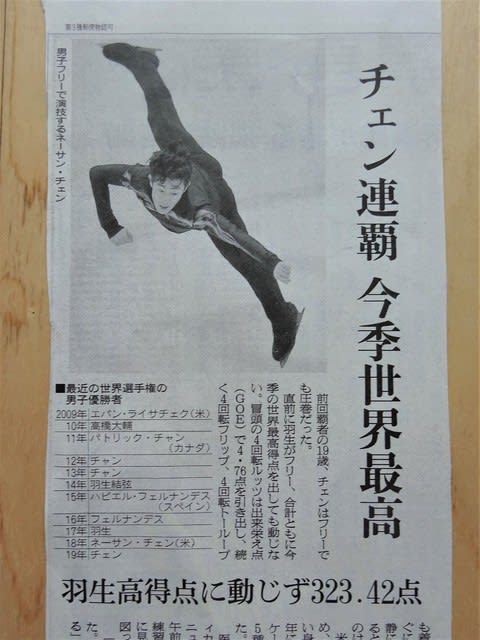 第3種郵便物認可
チェン連覇 今季世界最高
男子フリーで演技するネーサン・チェン
前回覇者の19歳、チェンはフリーで
も圧巻だった。
直前に羽生がフリー、合計ともに今
季の世界最高得点を出しても動じな
い。冒頭の4回転ルッツは出来栄え点
(GOE)で4・76点を引き出し、続
く4回転フリップ、4回転トーループ
■最近の世界選手権の
男子優勝者
2009年 エバン・ライサチェク(米)
10年 高橋大輔
11年 パトリック・チャン
(カナダ)
12年 チャン
13年 チャン
14年 羽生結弦
15年 ハビエル・フェルナンデス
(スペイン)
16年 フェルナンデス
17年 羽生
18年 ネーサン・チェン(米)
19年 チェン
羽生高得点に動じず323.42点